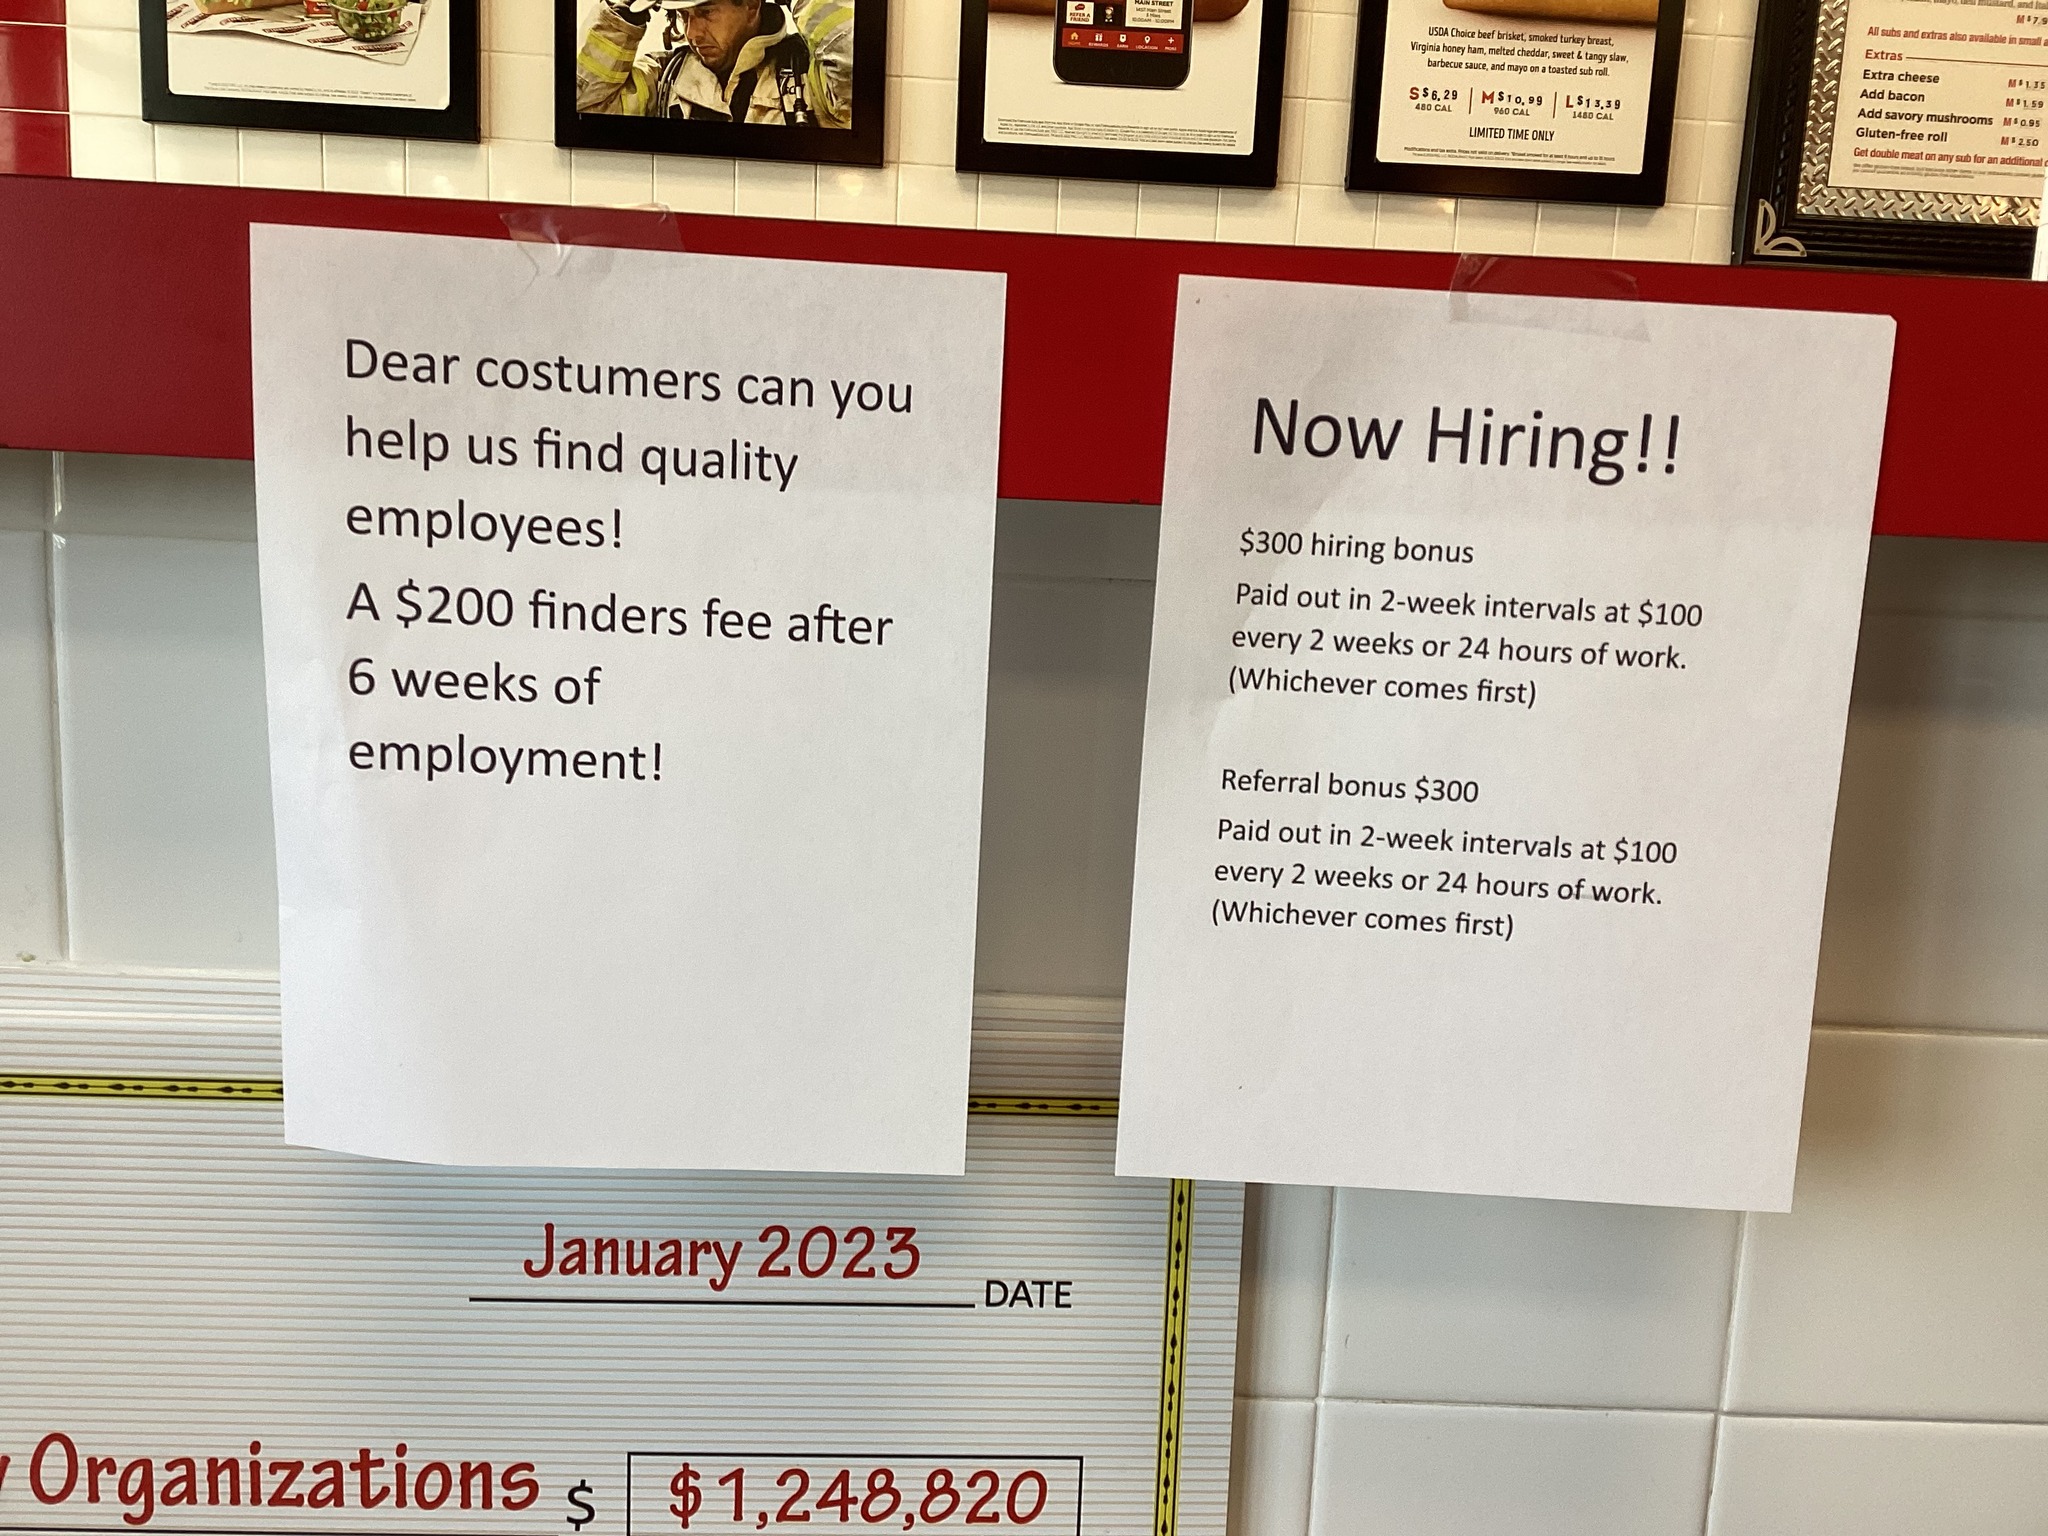 MAIN STREET
REFER A
FRIEND
USDA Choice beef brisket, smoked turkey breast,
Virginia honey ham, melted cheddar, sweet & tangy slaw,
barbecue sauce, and mayo on a toasted sub roll.
S $6.29 | M $10.99 | L $13.39
480 CAL 960 CAL 1480 CAL
LIMITED TIME ONLY
All subs and extras also available in small
Extras
Extra cheese M $1.35
Add bacon M $1.59
Add savory mushrooms M $0.95
Gluten-free roll M $2.50
Get double meat on any sub for an additional
Dear costumers can you
help us find quality
employees!
A $200 finders fee after
6 weeks of
employment!
Now Hiring!!
$300 hiring bonus
Paid out in 2-week intervals at $100
every 2 weeks or 24 hours of work.
(Whichever comes first)
Referral bonus $300
Paid out in 2-week intervals at $100
every 2 weeks or 24 hours of work.
(Whichever comes first)
January 2023
DATE
Organizations $ $1,248,820